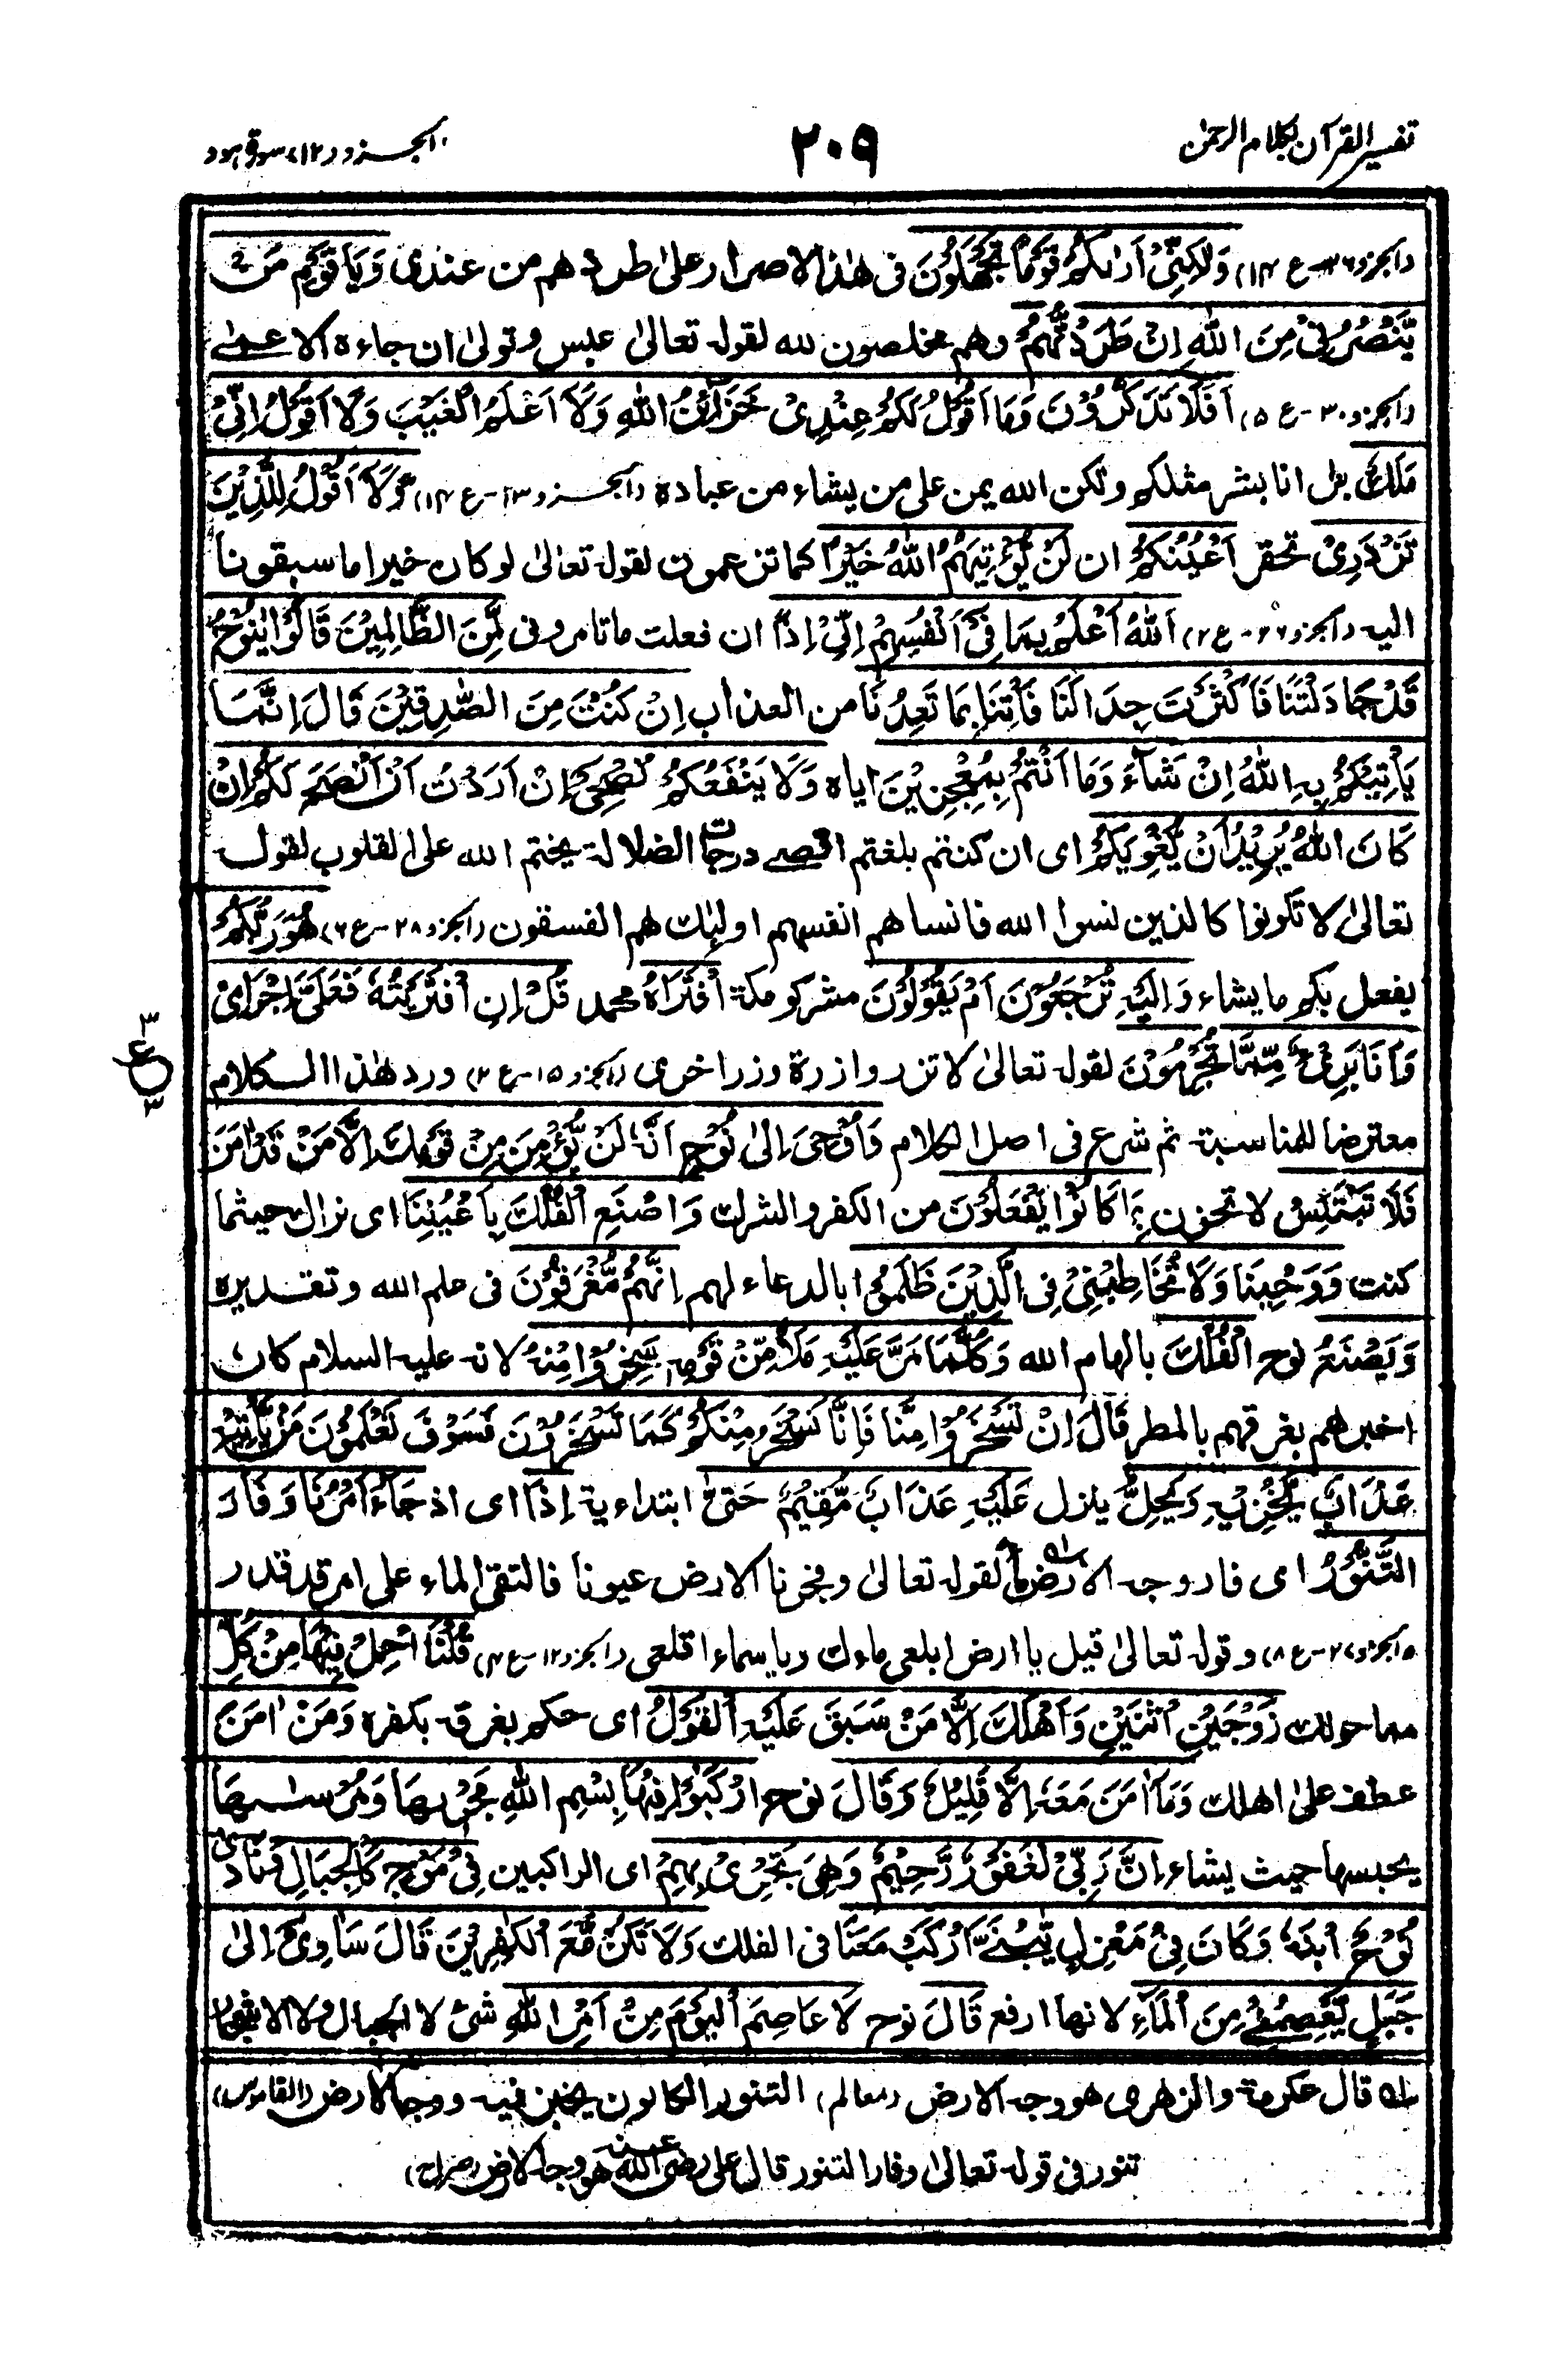 تفسير القرآن بكلام الرحمٰن
٢٠٩
الجزو (١٢) سورة هود
(الجزو ٢٦ - ع ١٤) وَلٰكِنِّيْ اَرٰىكُمْ قَوْمًا تَجْهَلُوْنَ فى هٰذا الاصرار علىٰ طردهم من عندى وَيَا قَوْمِ مَنْ
يَّنْصُرُنِيْ مِنَ اللّٰهِ اِنْ طَرَدْتُّهُمْ وهم مخلصون لله لقوله تعالىٰ عبس وتولىٰ ان جاءه الاعمىٰ
(الجزو ٣٠ - ع ٥) اَفَلَا تَذَكَّرُوْنَ وَمَا اَقُوْلُ لَكُمْ عِنْدِيْ خَزَآئِنُ اللّٰهِ وَلَآ اَعْلَمُ الْغَيْبَ وَلَا اَقُوْلُ اِنِّيْ
مَلَكٌ بل انا بشر مثلكم ولكن الله يمن على من يشاء من عباده (الجزو ١٣ - ع ١٤) وَلَآ اَقُوْلُ لِلَّذِيْنَ
تَزْدَرِيْ تحقر اَعْيُنُكُمْ ان لَنْ يُّؤْتِيَهُمُ اللّٰهُ خَيْرًا كما تزعمون لقوله تعالىٰ لو كان خيرا ما سبقونا
اليه (الجزو ٢٦ - ع ٢) اَللّٰهُ اَعْلَمُ بِمَا فِيْ اَنْفُسِهِمْ اِنِّيْ اِذًا ان فعلت ما تامرونى لَّمِنَ الظَّالِمِيْنَ قَالُوْا يٰنُوْحُ
قَدْ جَادَلْتَنَا فَاَكْثَرْتَ جِدَالَنَا فَأْتِنَا بِمَا تَعِدُنَا من العذاب اِنْ كُنْتَ مِنَ الصّٰدِقِيْنَ قَالَ اِنَّمَا
يَأْتِيْكُمْ بِهِ اللّٰهُ اِنْ شَآءَ وَمَا اَنْتُمْ بِمُعْجِزِيْنَ اياه وَلَا يَنْفَعُكُمْ نُصْحِيْ اِنْ اَرَدْتُ اَنْ اَنْصَحَ لَكُمْ اِنْ
كَانَ اللّٰهُ يُرِيْدُ اَنْ يُّغْوِيَكُمْ اى ان كنتم بلغتم اقصى درجات الضلالة يختم الله على القلوب لقوله
تعالىٰ لا تكونوا كالذين نسوا الله فانساهم انفسهم اولٰئك هم الفسقون (الجزو ٢٨ - ع ٦) هُوَ رَبُّكُمْ
يفعل بكم ما يشاء وَاِلَيْهِ تُرْجَعُوْنَ اَمْ يَقُوْلُوْنَ مشركو مكة افْتَرَاهُ محمد قُلْ اِنِ افْتَرَيْتُهٗ فَعَلَيَّ اِجْرَامِيْ
وَاَنَا بَرِيْءٌ مِّمَّا تُجْرِمُوْنَ لقوله تعالىٰ لا تزر وازرة وزر اخرى (الجزو ١٥ - ع ٢) ورد هٰذا الكلام
٣
ع
٣
معترضا للمناسبة ثم شرع فى اصل الكلام وَاُوْحِيَ اِلىٰ نُوْحٍ اَنَّهٗ لَنْ يُّؤْمِنَ مِنْ قَوْمِكَ اِلَّا مَنْ قَدْ اٰمَنَ
فَلَا تَبْتَئِسْ لا تحزن بِمَا كَانُوْا يَفْعَلُوْنَ من الكفر والشرك وَاصْنَعِ الْفُلْكَ بِاَعْيُنِنَا اى نراك حيثما
كنت وَوَحْيِنَا وَلَا تُخَاطِبْنِيْ فِى الَّذِيْنَ ظَلَمُوْا بالدعاء لهم اِنَّهُمْ مُّغْرَقُوْنَ فى علم الله وتقديره
وَيَصْنَعُ نوح الْفُلْكَ بالهام الله وَكُلَّمَا مَرَّ عَلَيْهِ مَلَأٌ مِّنْ قَوْمِهٖ سَخِرُوْا مِنْهُ لانه عليه السلام كان
اخبرهم بغرقهم بالمطر قَالَ اِنْ تَسْخَرُوْا مِنَّا فَاِنَّا نَسْخَرُ مِنْكُمْ كَمَا تَسْخَرُوْنَ فَسَوْفَ تَعْلَمُوْنَ مَنْ يَّأْتِيْهِ
عَذَابٌ يُّخْزِيْهِ وَيَحِلُّ ينزل عَلَيْهِ عَذَابٌ مُّقِيْمٌ حَتىّٰ ابتداءية اِذَا اى اذ جَآءَ اَمْرُنَا وَفَارَ
التَّنُّوْرُ اى فار وجه الارض ماء لقوله تعالىٰ وفجرنا الارض عيونا فالتقى الماء على امر قد قدر
(الجزو ٢٧ - ع ٨) وقوله تعالىٰ قيل يا ارض ابلعى ماءك ويا سماء اقلعى (الجزو ١٢ - ع ٤) قُلْنَا احْمِلْ فِيْهَا مِنْ كُلٍّ
مما حولك زَوْجَيْنِ اثْنَيْنِ وَاَهْلَكَ اِلَّا مَنْ سَبَقَ عَلَيْهِ الْقَوْلُ اى حكم بغرقه بكفره وَمَنْ اٰمَنَ
عطف علىٰ اهلك وَمَآ اٰمَنَ مَعَهٗ اِلَّا قَلِيْلٌ وَقَالَ نوح ارْكَبُوْا فِيْهَا بِسْمِ اللّٰهِ مَجْرٖىهَا وَمُرْسٰىهَا
يحبسها حيث يشاء اِنَّ رَبِّيْ لَغَفُوْرٌ رَّحِيْمٌ وَهِيَ تَجْرِيْ بِهِمْ اى الراكبين فِيْ مَوْجٍ كَالْجِبَالِ وَنَادىٰ
نُوْحُ ابْنَهٗ وَكَانَ فِيْ مَعْزِلٍ يّٰبُنَيَّ ارْكَبْ مَعَنَا فى الفلك وَلَا تَكُنْ مَّعَ الْكٰفِرِيْنَ قَالَ سَاٰوِيْ اِلىٰ
جَبَلٍ يَّعْصِمُنِيْ مِنَ الْمَآءِ لانها ارفع قَالَ نوح لَا عَاصِمَ الْيَوْمَ مِنْ اَمْرِ اللّٰهِ شئ لا الجبال ولا الاشجار
١٥ قال عكرمة والزهرى هو وجه الارض (معالم) التنور الكانون يخبز فيه ووجه الارض (القاموس)
تنور فى قوله تعالىٰ وفار التنور قال على رضى الله عنه هو وجه الارض (صراح)